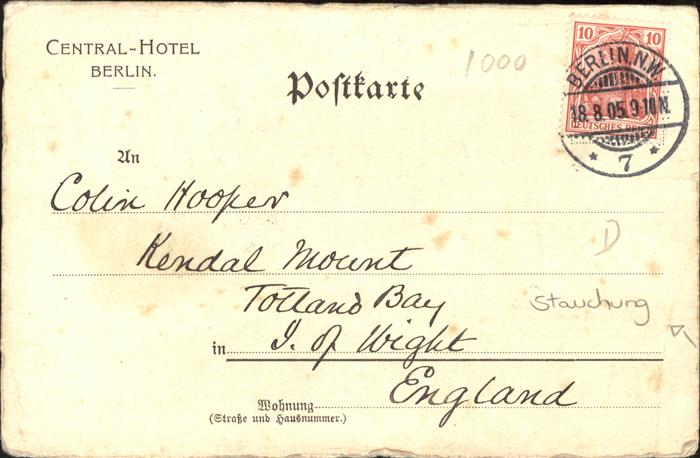 CENTRAL-HOTEL
BERLIN.
1000
Postkarte
10 10
DEUTSCHES REICH
BERLIN, N.W.
18.8.05.9-10N.
* 7 *
An
Colin Hooper
Kendal Mount
D
Totland Bay
Stauchung
in I. of Wight
England
Wohnung
(Straße und Hausnummer.)